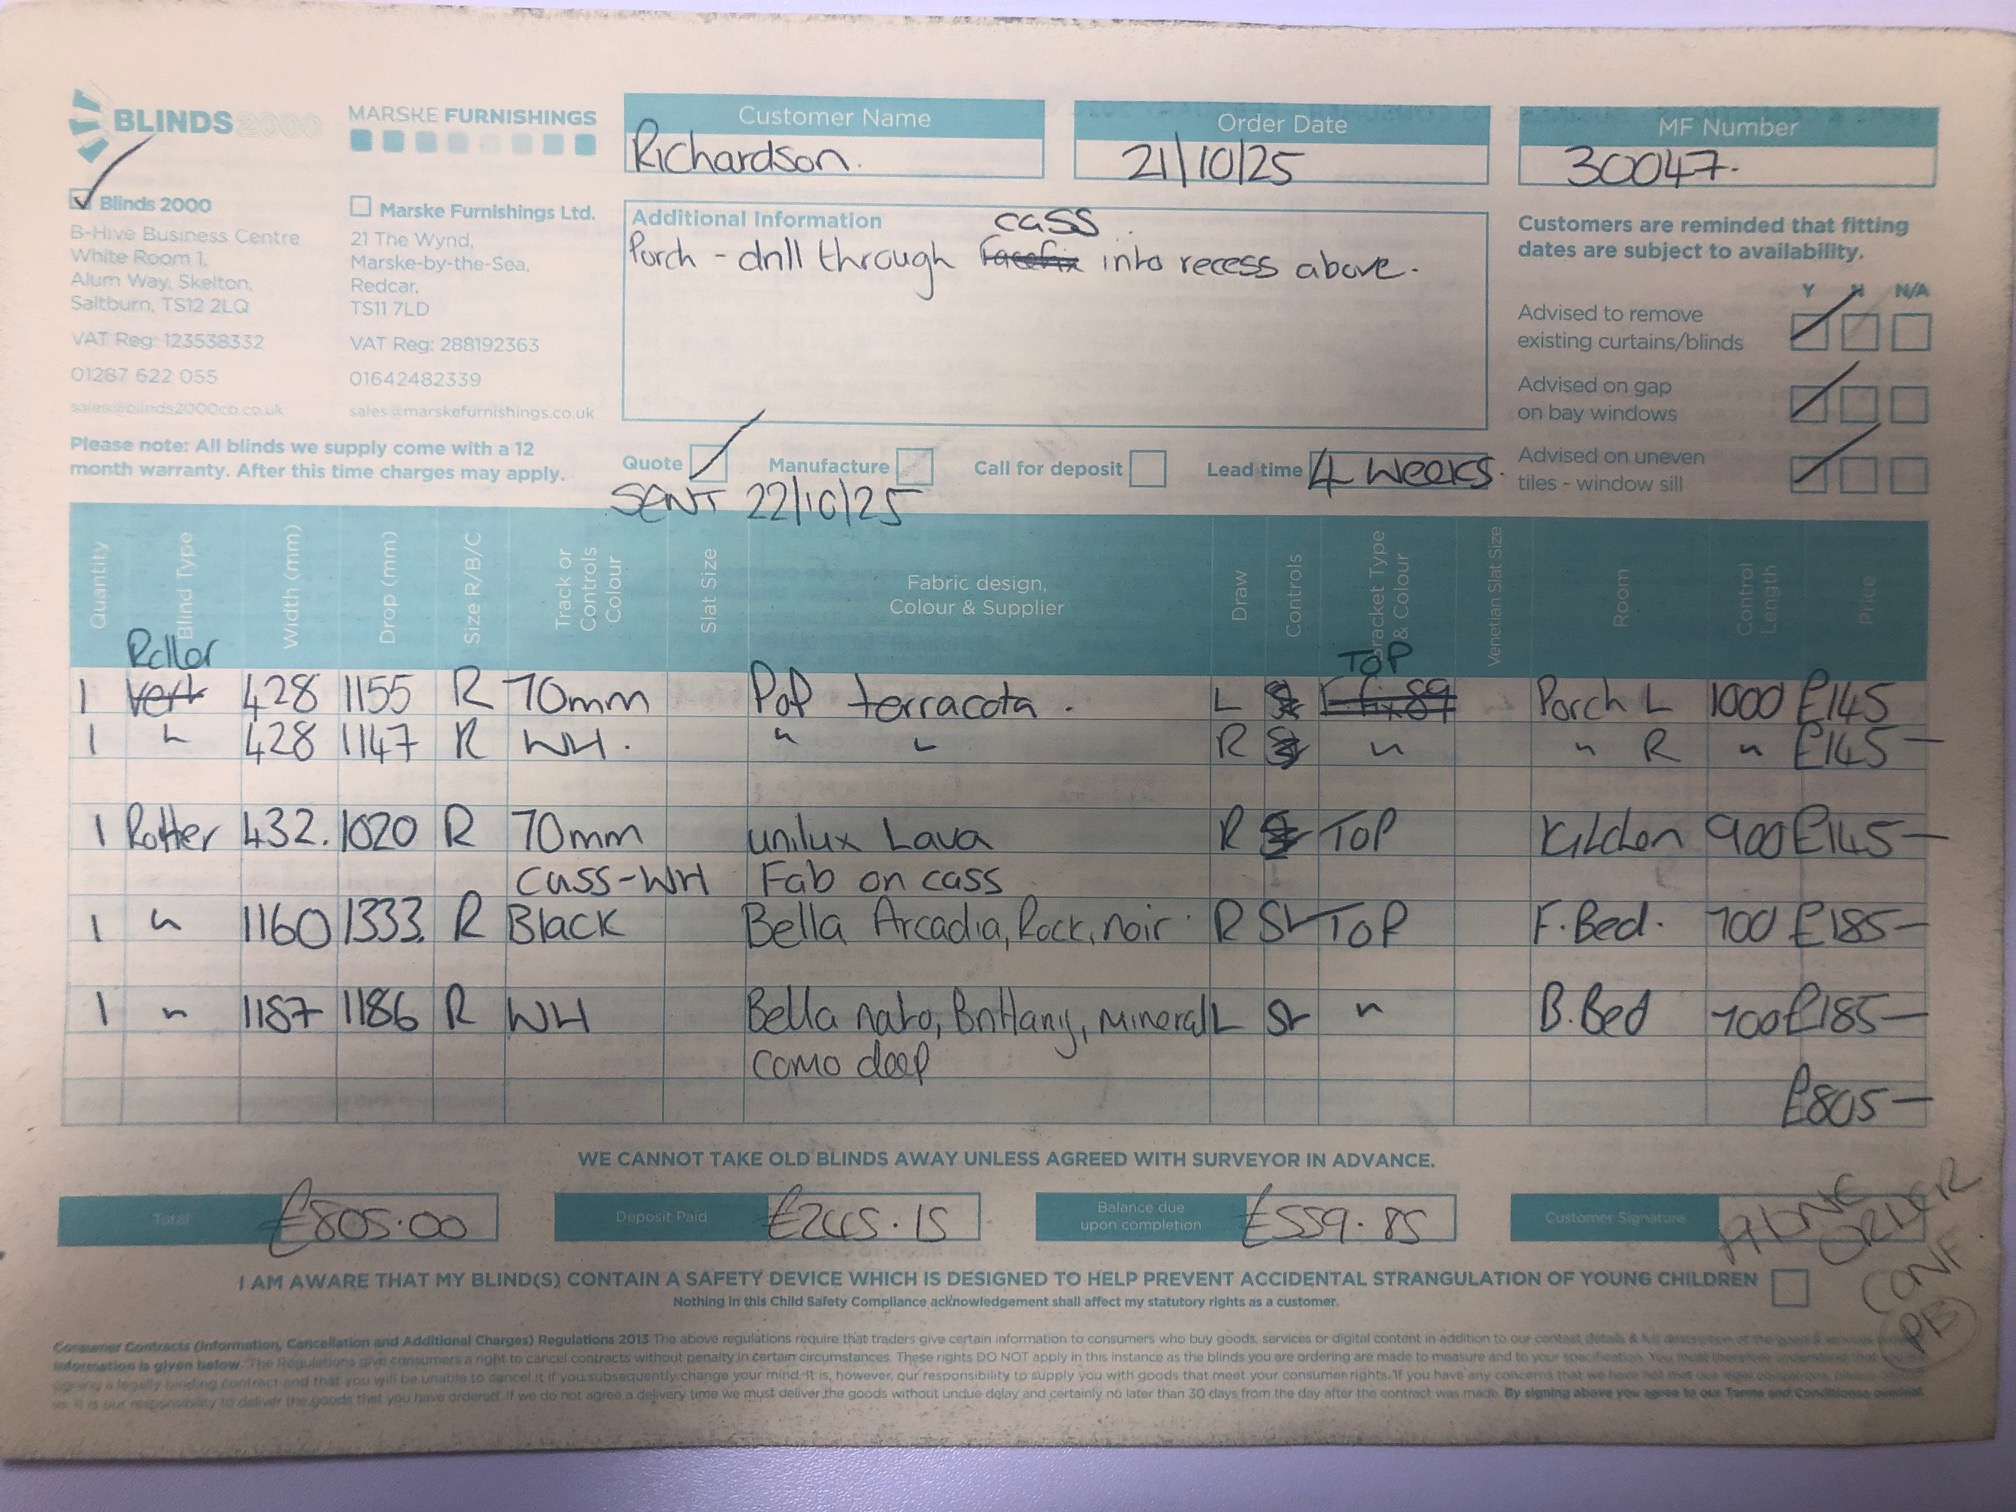 BLINDS2000
MARSKE FURNISHINGS
Customer Name
Richardson.
Order Date
21/10/25
MF Number
30047.
Blinds 2000
B-Hive Business Centre
White Room 1,
Alum Way, Skelton,
Saltburn, TS12 2LQ
VAT Reg: 123538332
01287 622 055
sales@blinds2000cb.co.uk
Marske Furnishings Ltd.
21 The Wynd,
Marske-by-the-Sea,
Redcar,
TS11 7LD
VAT Reg: 288192363
01642482339
sales@marskefurnishings.co.uk
Additional Information
cass
Porch - drill through Facefix into recess above.
Customers are reminded that fitting
dates are subject to availability.
Y N N/A
Advised to remove
existing curtains/blinds
Advised on gap
on bay windows
Advised on uneven
tiles - window sill
Please note: All blinds we supply come with a 12
month warranty. After this time charges may apply.
Quote Manufacture Call for deposit Lead time 4 weeks.
SENT 22/10/25
Quantity Blind Type Width (mm) Drop (mm) Size R/B/C Track or Controls Colour Slat Size Fabric design, Colour & Supplier Draw Controls Bracket Type & Colour Venetian Slat Size Room Control Length Price
Roller TOP
1 Vert 428 1155 R 70mm Pop terracota. L Porch L 1000 £145
1 " 428 1147 R WH. " " R " " R " £145-
1 Roller 432. 1020 R 70mm unilux Lava R TOP Kitchen 900 £145-
Cass-WH Fab on cass
1 " 1160 1333. R Black Bella Arcadia, Rock, noir. R SL TOP F.Bed. 700 £185-
1 " 1187 1186 R WH Bella naro, Brittany, Mineral L SL " B.Bed 700 £185-
como deep
£805-
WE CANNOT TAKE OLD BLINDS AWAY UNLESS AGREED WITH SURVEYOR IN ADVANCE.
Total £805.00
Deposit Paid £245.15
Balance due upon completion £559.85
Customer Signature
PHONE
ORDER
CONF
PB
I AM AWARE THAT MY BLIND(S) CONTAIN A SAFETY DEVICE WHICH IS DESIGNED TO HELP PREVENT ACCIDENTAL STRANGULATION OF YOUNG CHILDREN
Nothing in this Child Safety Compliance acknowledgement shall affect my statutory rights as a customer.
Consumer Contracts (Information, Cancellation and Additional Charges) Regulations 2013 The above regulations require that traders give certain information to consumers who buy goods, services or digital content in addition to our contact details & full description of the goods & services
information is given below. The Regulations give consumers a right to cancel contracts without penalty in certain circumstances. These rights DO NOT apply in this instance as the blinds you are ordering are made to measure and to your specification. You must therefore understand that
signing a legally binding contract and that you will be unable to cancel it if you subsequently change your mind. It is, however, our responsibility to supply you with goods that meet your consumer rights. If you have any concerns that we have not met our legal
us. It is our responsibility to deliver the goods that you have ordered. If we do not agree a delivery time we must deliver the goods without undue delay and certainly no later than 30 days from the day after the contract was made. By signing above you agree to our Terms and Conditions overleaf.